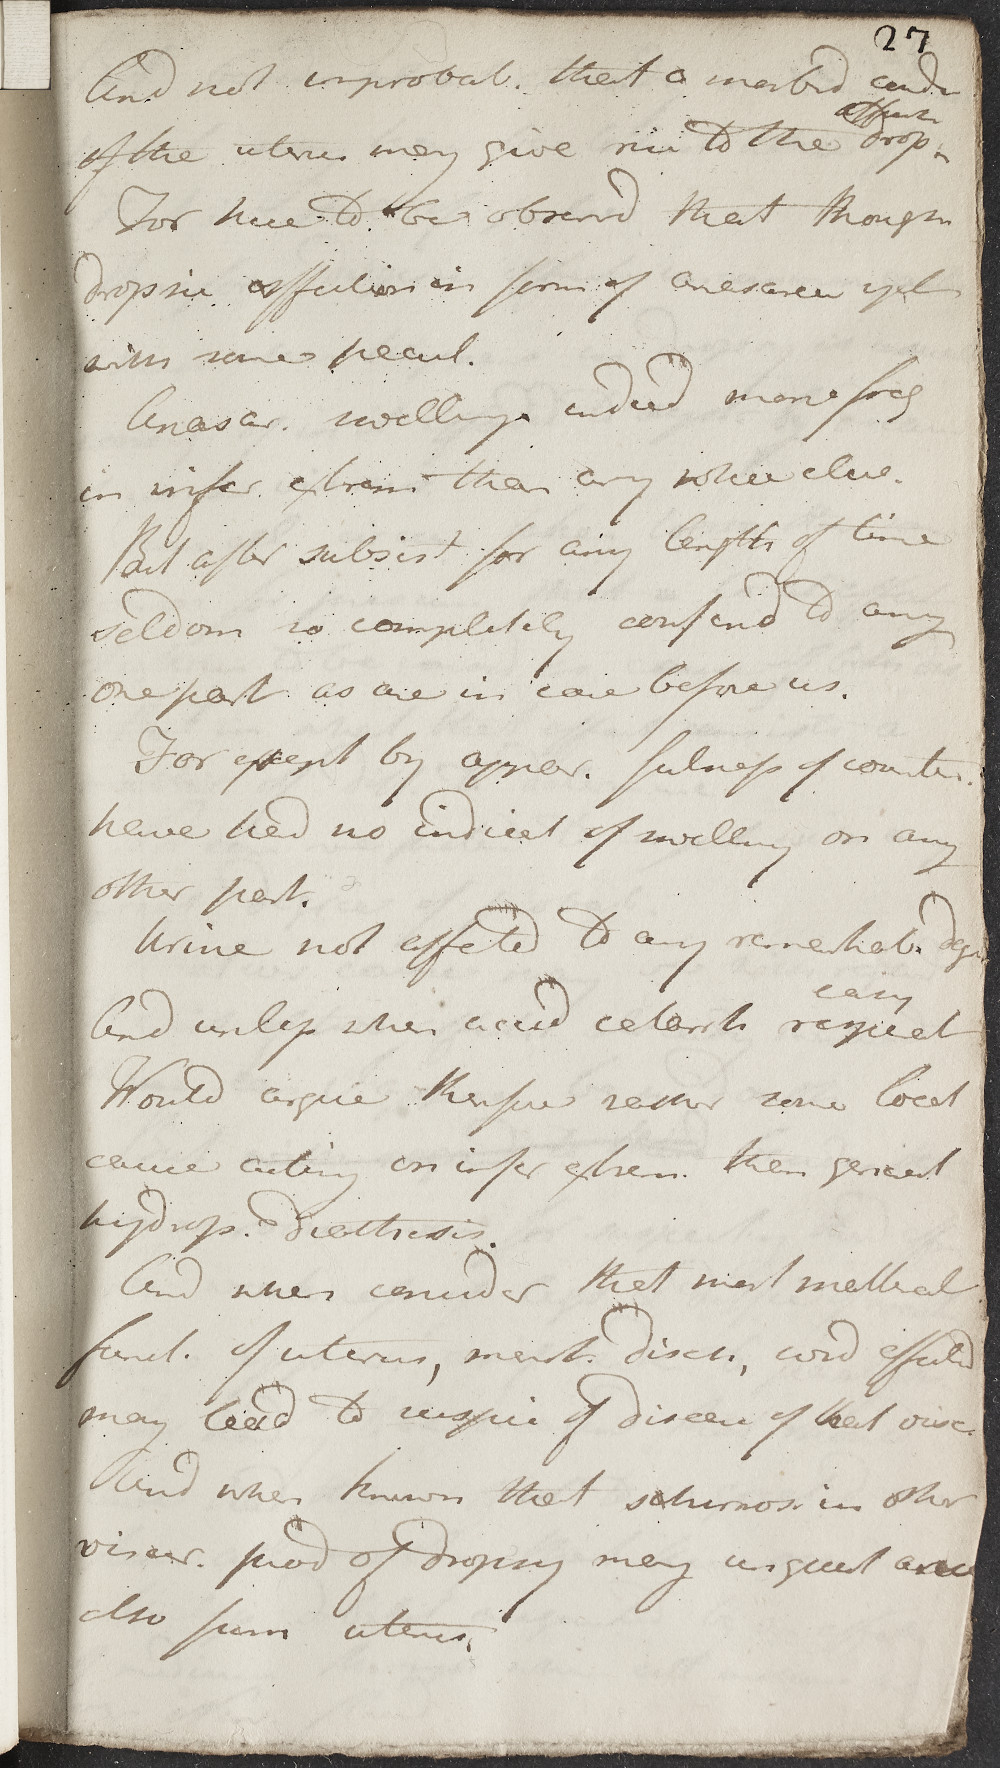 27
And not improbab. that a morbid condn
of the uterus may give rise to the drop.
affect
For here to be observd that though
dropsic affection in form of anasarca yet
with some pecul.
Anasar. swellings indeed more freq
in infer. extrem than any where else.
But after subsist for any length of time
seldom so completely confind to any
one part as are in case before us.
For except by appear. fulness of counten.
have had no indicat of swelling on any
other part.
Urine not affected to any remarkab. degr
easy
And unless when accid catarrh respirat
Would argue therefore rather some local
cause acting on infer extrem. than general
hydrop. diathesis.
And when consider that most material
funct. of uterus, menst. disch, consid affected
may lead to suspic of disease of that visc.
And when known that schirrosi. in other
viscer. prod of dropsy may suspect
also from uterus.